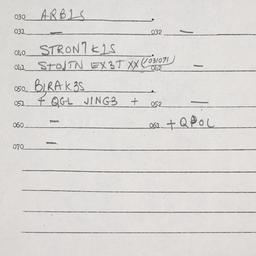 030 ARBIS
031 — 032 —
040 STRONTKIS
041 EX3T XX (031071) 042 —
050 BIRAK3S
051 + QGL JING3 + 052 —
060 — 061 + QPOL
070 —